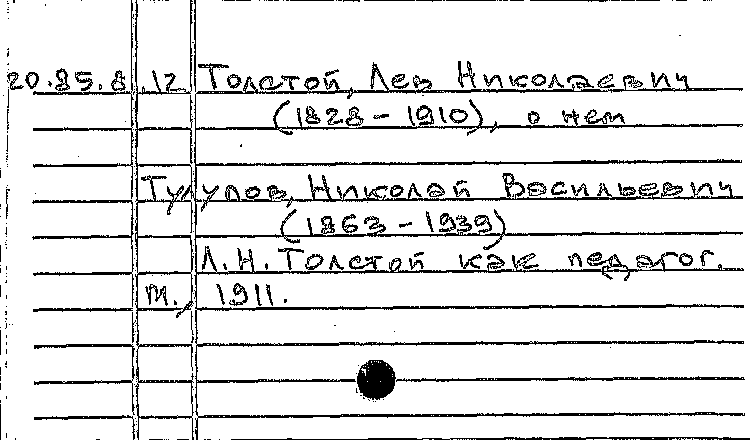 20.85.8.12 Толстой, Лев Николаевич
(1828 - 1910), о нем
Тулупов, Николай Васильевич
(1863 - 1939)
Л. Н. Толстой как педагог.
М., 1911.